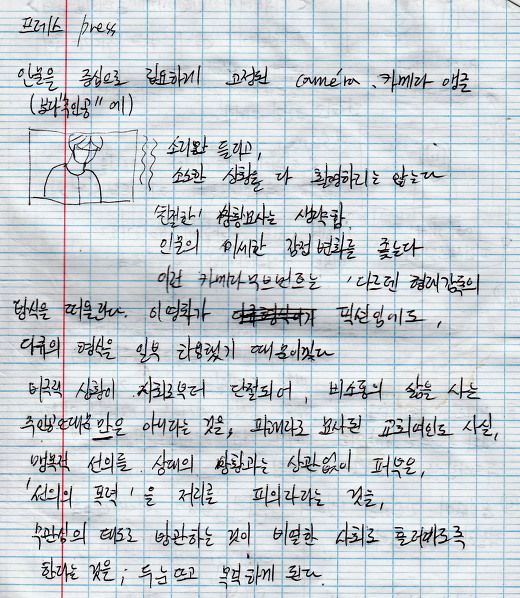 프레스 press
인물을 중심으로 집요하게 고정된 caméra. 카메라 앵글
(보다 "주인공" 에)
소리만 들리고,
소소한 상황을 다 촬영하지는 않는다
'친절한' 상황묘사는 생략함.
인물의 미세한 감정 변화를 쫓는다
이런 카메라 무브먼트는 '다르덴 형제감독의
방식을 떠올린다. 이 영화가 픽션임에도,
다큐의 형식을 일부 차용했기 때문이겠다
비극적 상황이 사회로부터 단절되어, 비소통의 삶을 사는
주인공 때문 만은 아니라는 것을, 피해자로 묘사된 교회여인도 사실,
맹목적 선의를 상대의 상황과는 상관없이 퍼부은,
'선의의 폭력'을 저지른 피의자라는 것을,
무관심의 태도로 방관하는 것이 비열한 사회로 흘러가도록
한다는 것을, 두 눈 뜨고 목격하게 된다.